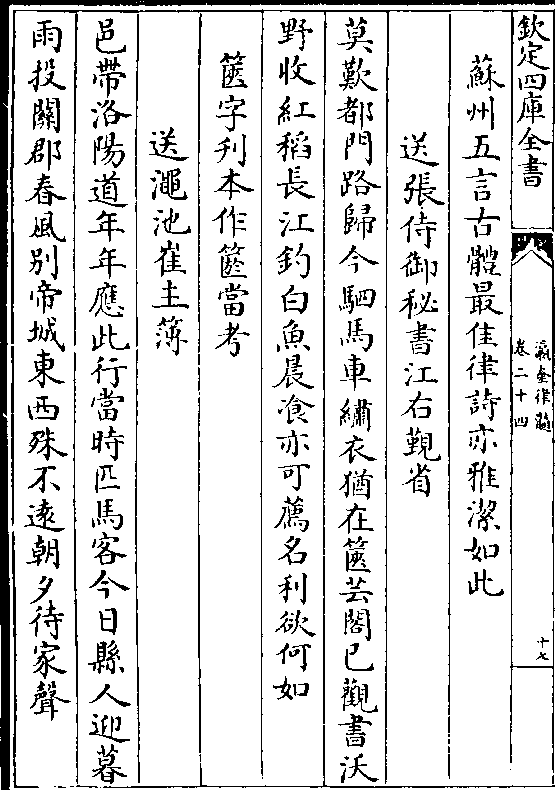 欽定四庫全書
瀛奎律髓
卷二十四
十七
蘇州五言古體最佳律詩亦雅潔如此
送張侍御秘書江右覲省
莫歎都門路歸今駟馬車繡衣猶在篋芸閣已觀書沃
野收紅稻長江釣白魚晨飡亦可薦名利欲何如
篋字刋本作篋當考
送澠池崔主簿
邑帶洛陽道年年應此行當時匹馬客今日縣人迎暮
雨投關郡春風别帝城東西殊不遠朝夕待家聲